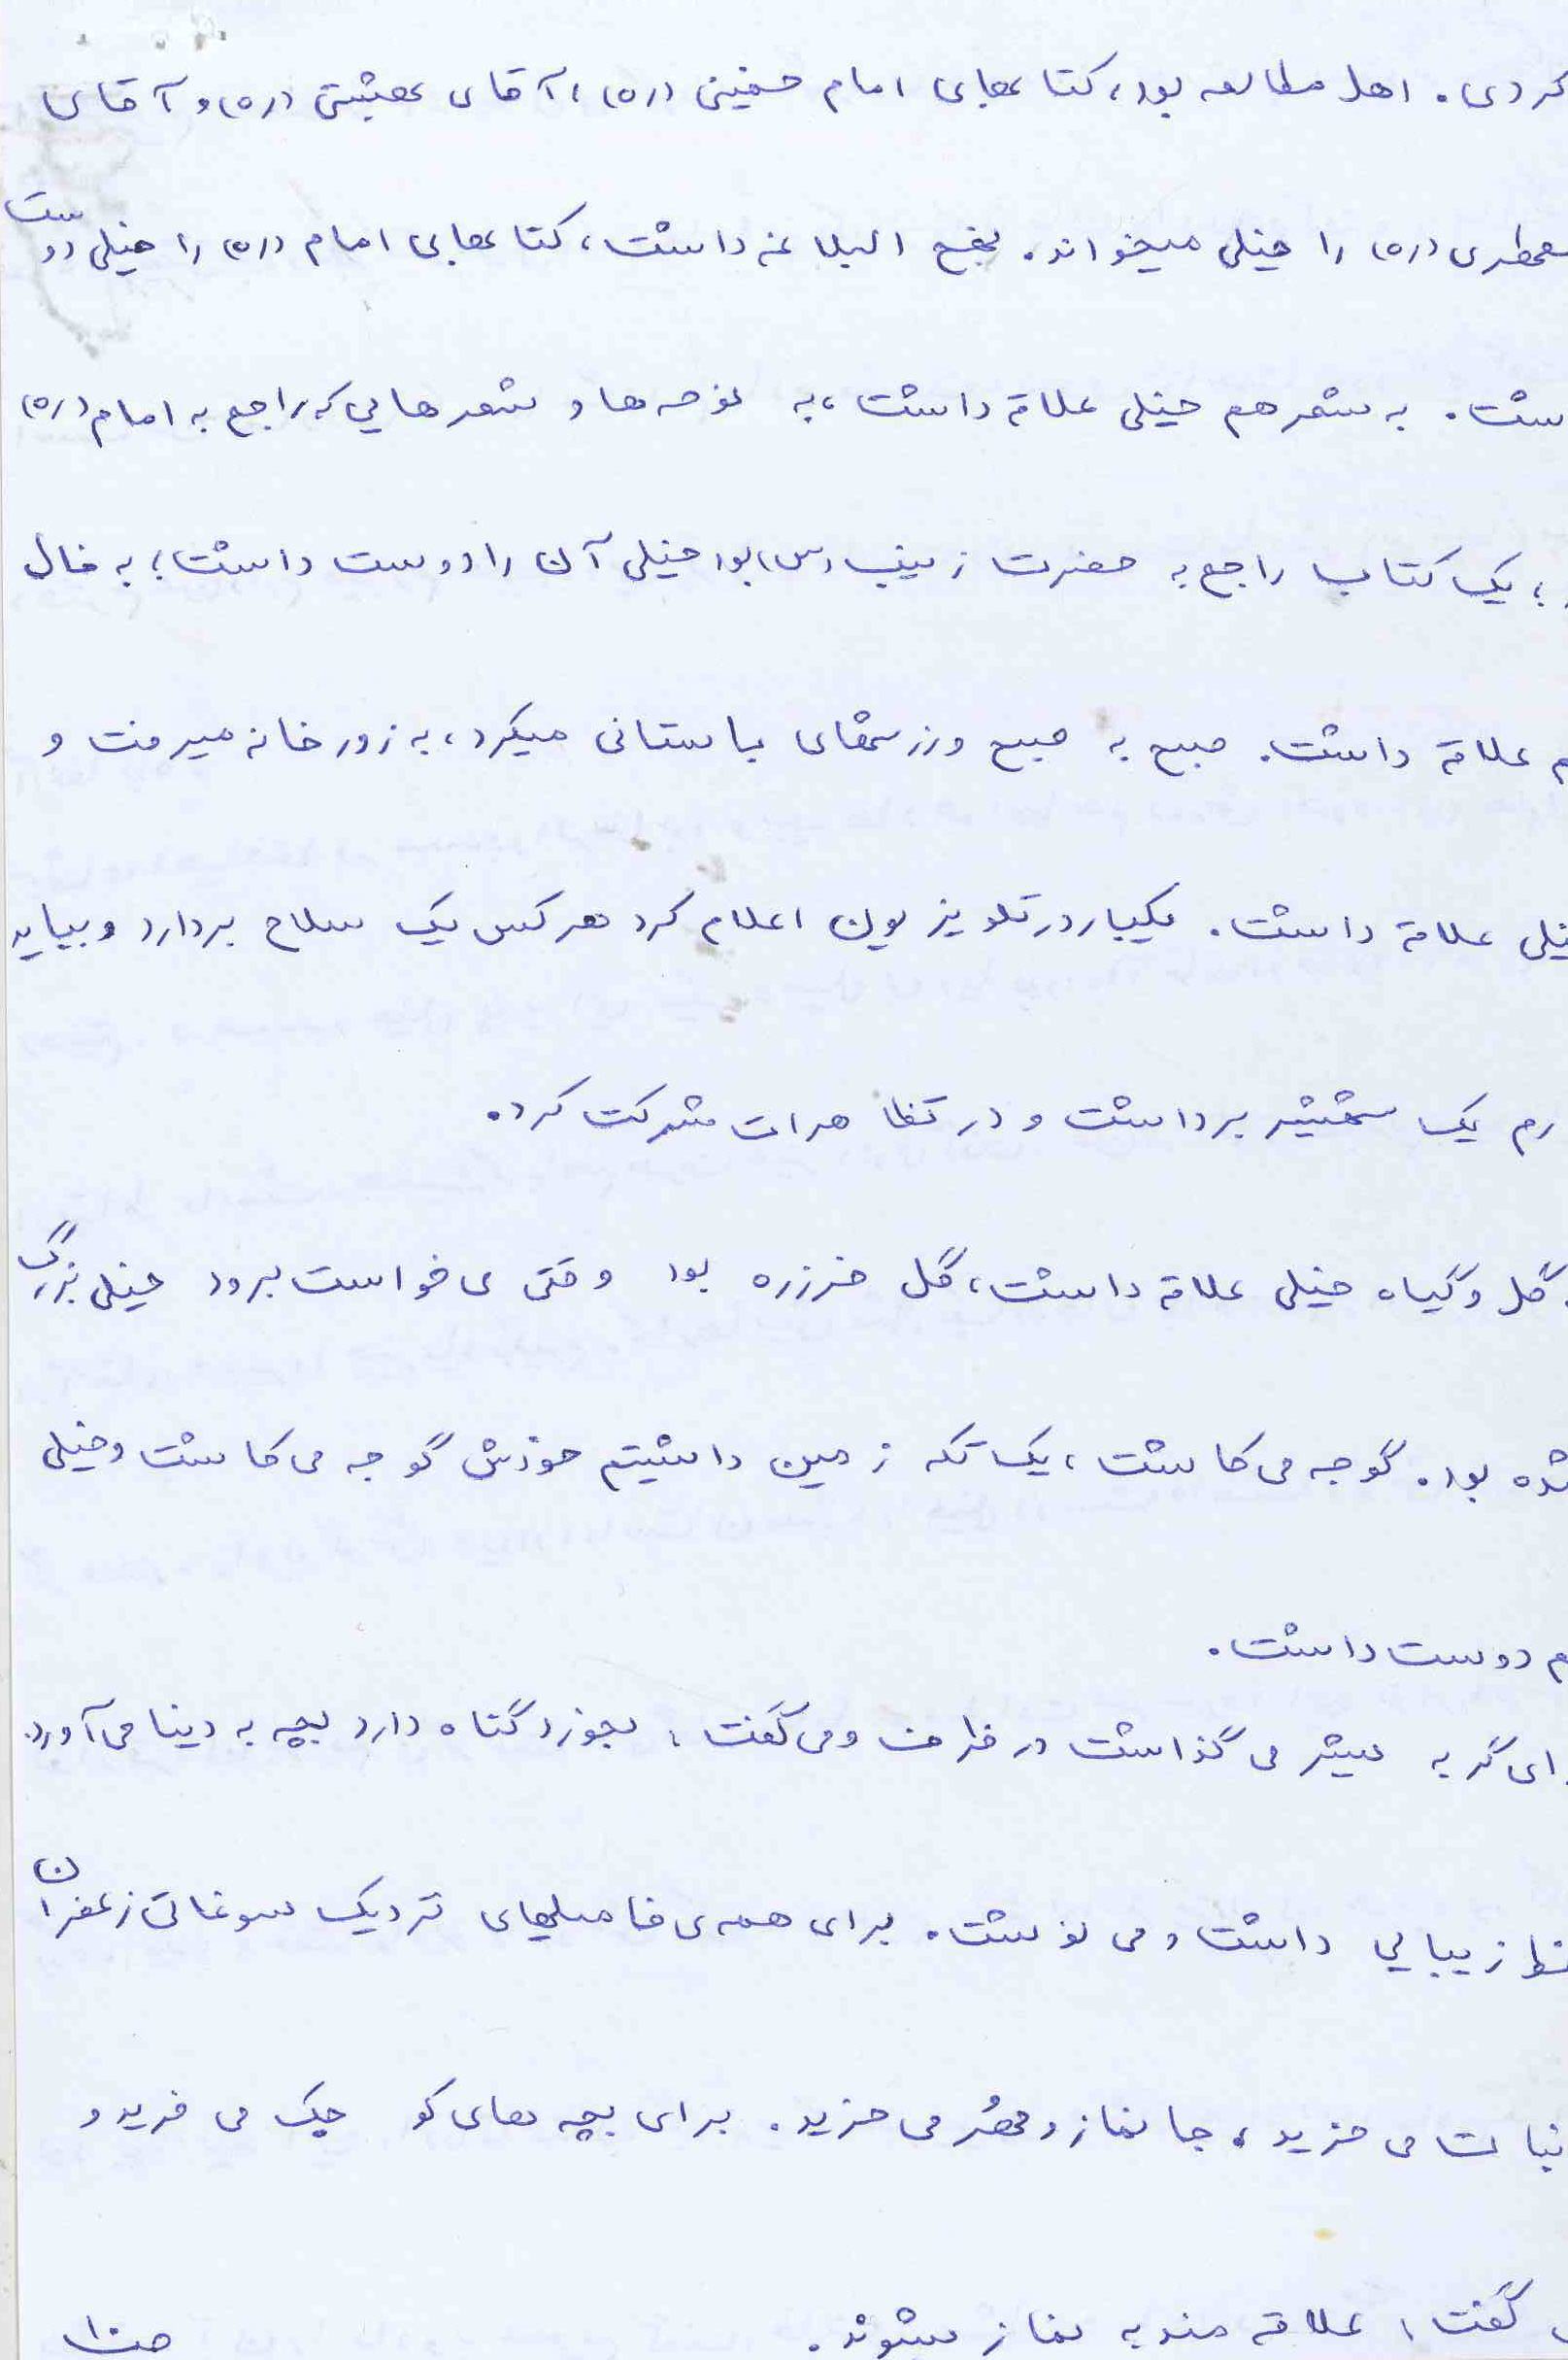 کردی. اهل مطالعه بود، کتابهای امام خمینی (ره)، آقای بهشتی (ره) و آقای
مطهری (ره) را خیلی میخواند. نهج البلاغه داشت، کتابهای امام (ره) را خیلی دوست
داشت. به شعر هم خیلی علاقه داشت، به نوحه ها و شعرهایی که راجع به امام (ره)
؛ یک کتاب راجع به حضرت زینب (س) بود خیلی آن را دوست داشت؛ به فال
علاقه داشت. صبح به صبح ورزشهای باستانی میکرد، به زورخانه میرفت و
خیلی علاقه داشت. یکبار در تلویزیون اعلام کرد هر کس یک سلاح بردارد و بیاید
یک شمشیر برداشت و در تظاهرات شرکت کرد.
گل و گیاه خیلی علاقه داشت، گل خرزره بود وقتی می خواست برود خیلی بزرگ
شده بود. گوجه می کاشت، یک تکه زمین داشتیم خودش گوجه می کاشت و خیلی
دوست داشت.
برای گربه شیر می گذاشت در ظرف و می گفت: بخورد گناه دارد بچه به دنیا می آورد.
خط زیبایی داشت و می نوشت. برای همه ی فامیلهای نزدیک سوغاتی زعفران
نبات می خرید، جانماز و مهُر می خرید. برای بچه های کوچک می خرید و
گفت: علاقه مند به نماز میشوند.
ص۱۰